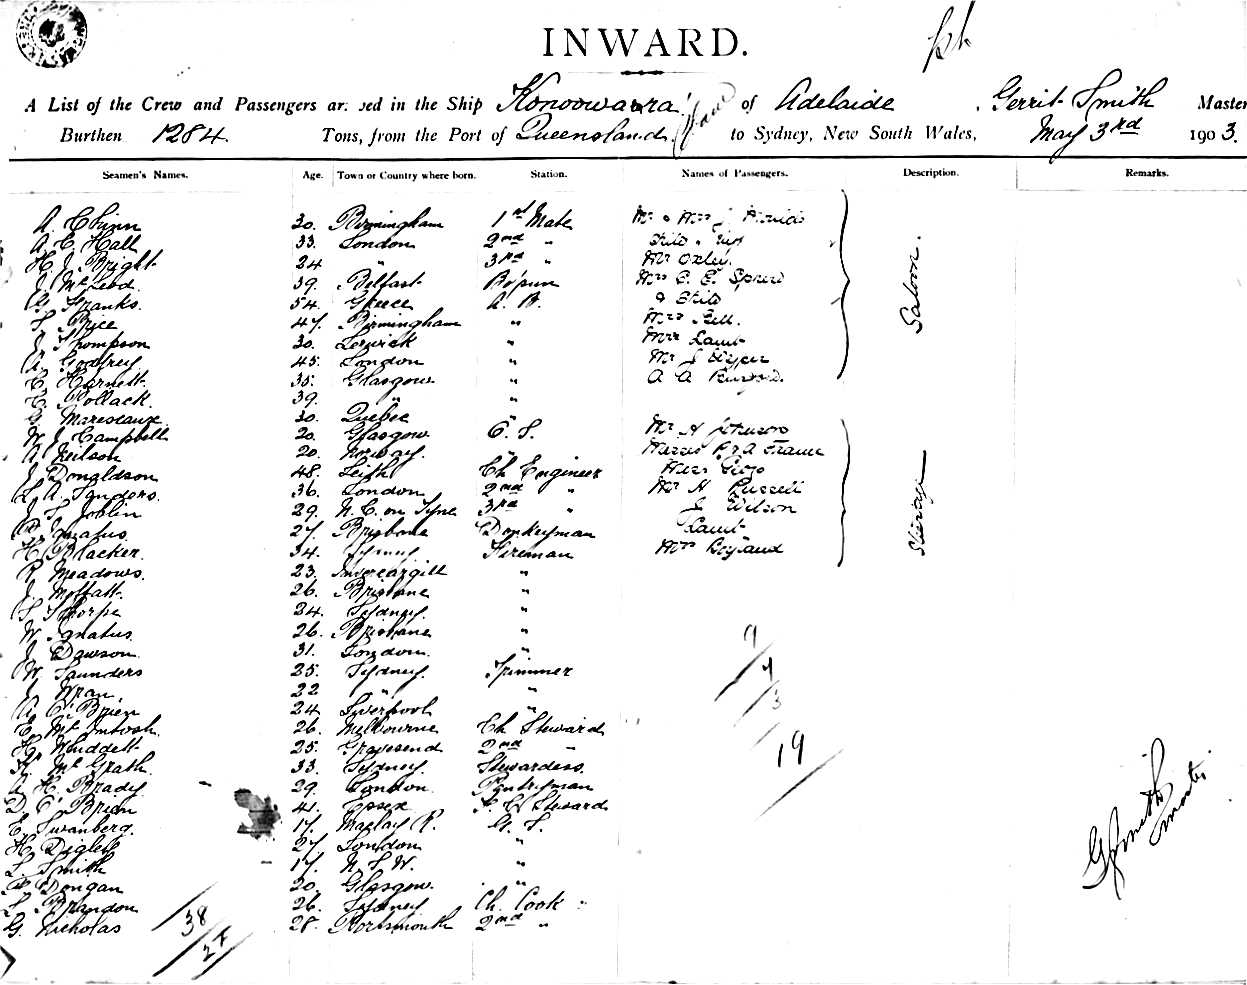 INWARD.
A List of the Crew and Passengers arrived in the Ship Konoowarra of Adelaide, Gerrit Smith Master
Burthen 1284 Tons, from the Port of Queensland to Sydney, New South Wales, May 3rd 1903.
Seamen's Names. Age. Town or Country where born. Station. Names of Passengers. Description. Remarks.
A. Chinn 30. Birmingham 1st Mate
A. C. Hall 33. London 2nd "
H. J. Bright 24 " 3rd " Mr Oxley
J. McLeod 39. Belfast Bo'sun Mrs C. E.
A. Franks. 54. Greece A. B. & Child
S. Price 47. Birmingham " Mrs Bell.
J. Thompson 30. Lerwick " Mrs Lamb
A. Godfrey 45. London " Mr J
C. Harnett 35. Glasgow "
C. Pollack. 39. " "
G. Maresceaux 30. Quebec "
W. J. Campbell 20. Glasgow O. S. Mr A Johnson
A. Neilson 20. Norway.
J. Donaldson 48. Leith Ch Engineer
L. A. Sanders. 36. London 2nd " Mr H Russell
J. S. Joblin 29. N. C. on Tyne 3rd " J Wilson
P. Ignatus. 27. Brisbane Donkeyman Lamb
H. Blacker. 34. Sydney Fireman Mrs Boyland
R. Meadows. 23. Invercargill "
J. Moffatt. 26. Brisbane "
S. Thorpe 24. Sydney. "
W. Ignatus 26. Brisbane "
J. Dawson. 31. London. "
W. Saunders 25. Sydney. Trimmer
J. Wran. 22 " "
A. O'Brien 24 Liverpool "
C. McIntosh. 26. Melbourne Ch Steward
H. Whiddett 25. Gravesend 2nd "
K. McGrath. 33. Sydney. Stewardess.
A. H. Brady. 29. London. Pantryman
D. O'Brien 41. Essex F. C. Steward
E. Swanberg. 17. Maclay R. G. S.
H. Diglett 27 London "
L. Smith 17. N. S. W. "
P. Dongan 20. Glasgow. "
S. Brandon 26. Sydney Ch. Cook "
G. Nicholas 28. Portsmouth 2nd "
Saloon.
Steerage
9
7
3
19
38
27
G Smith
Master